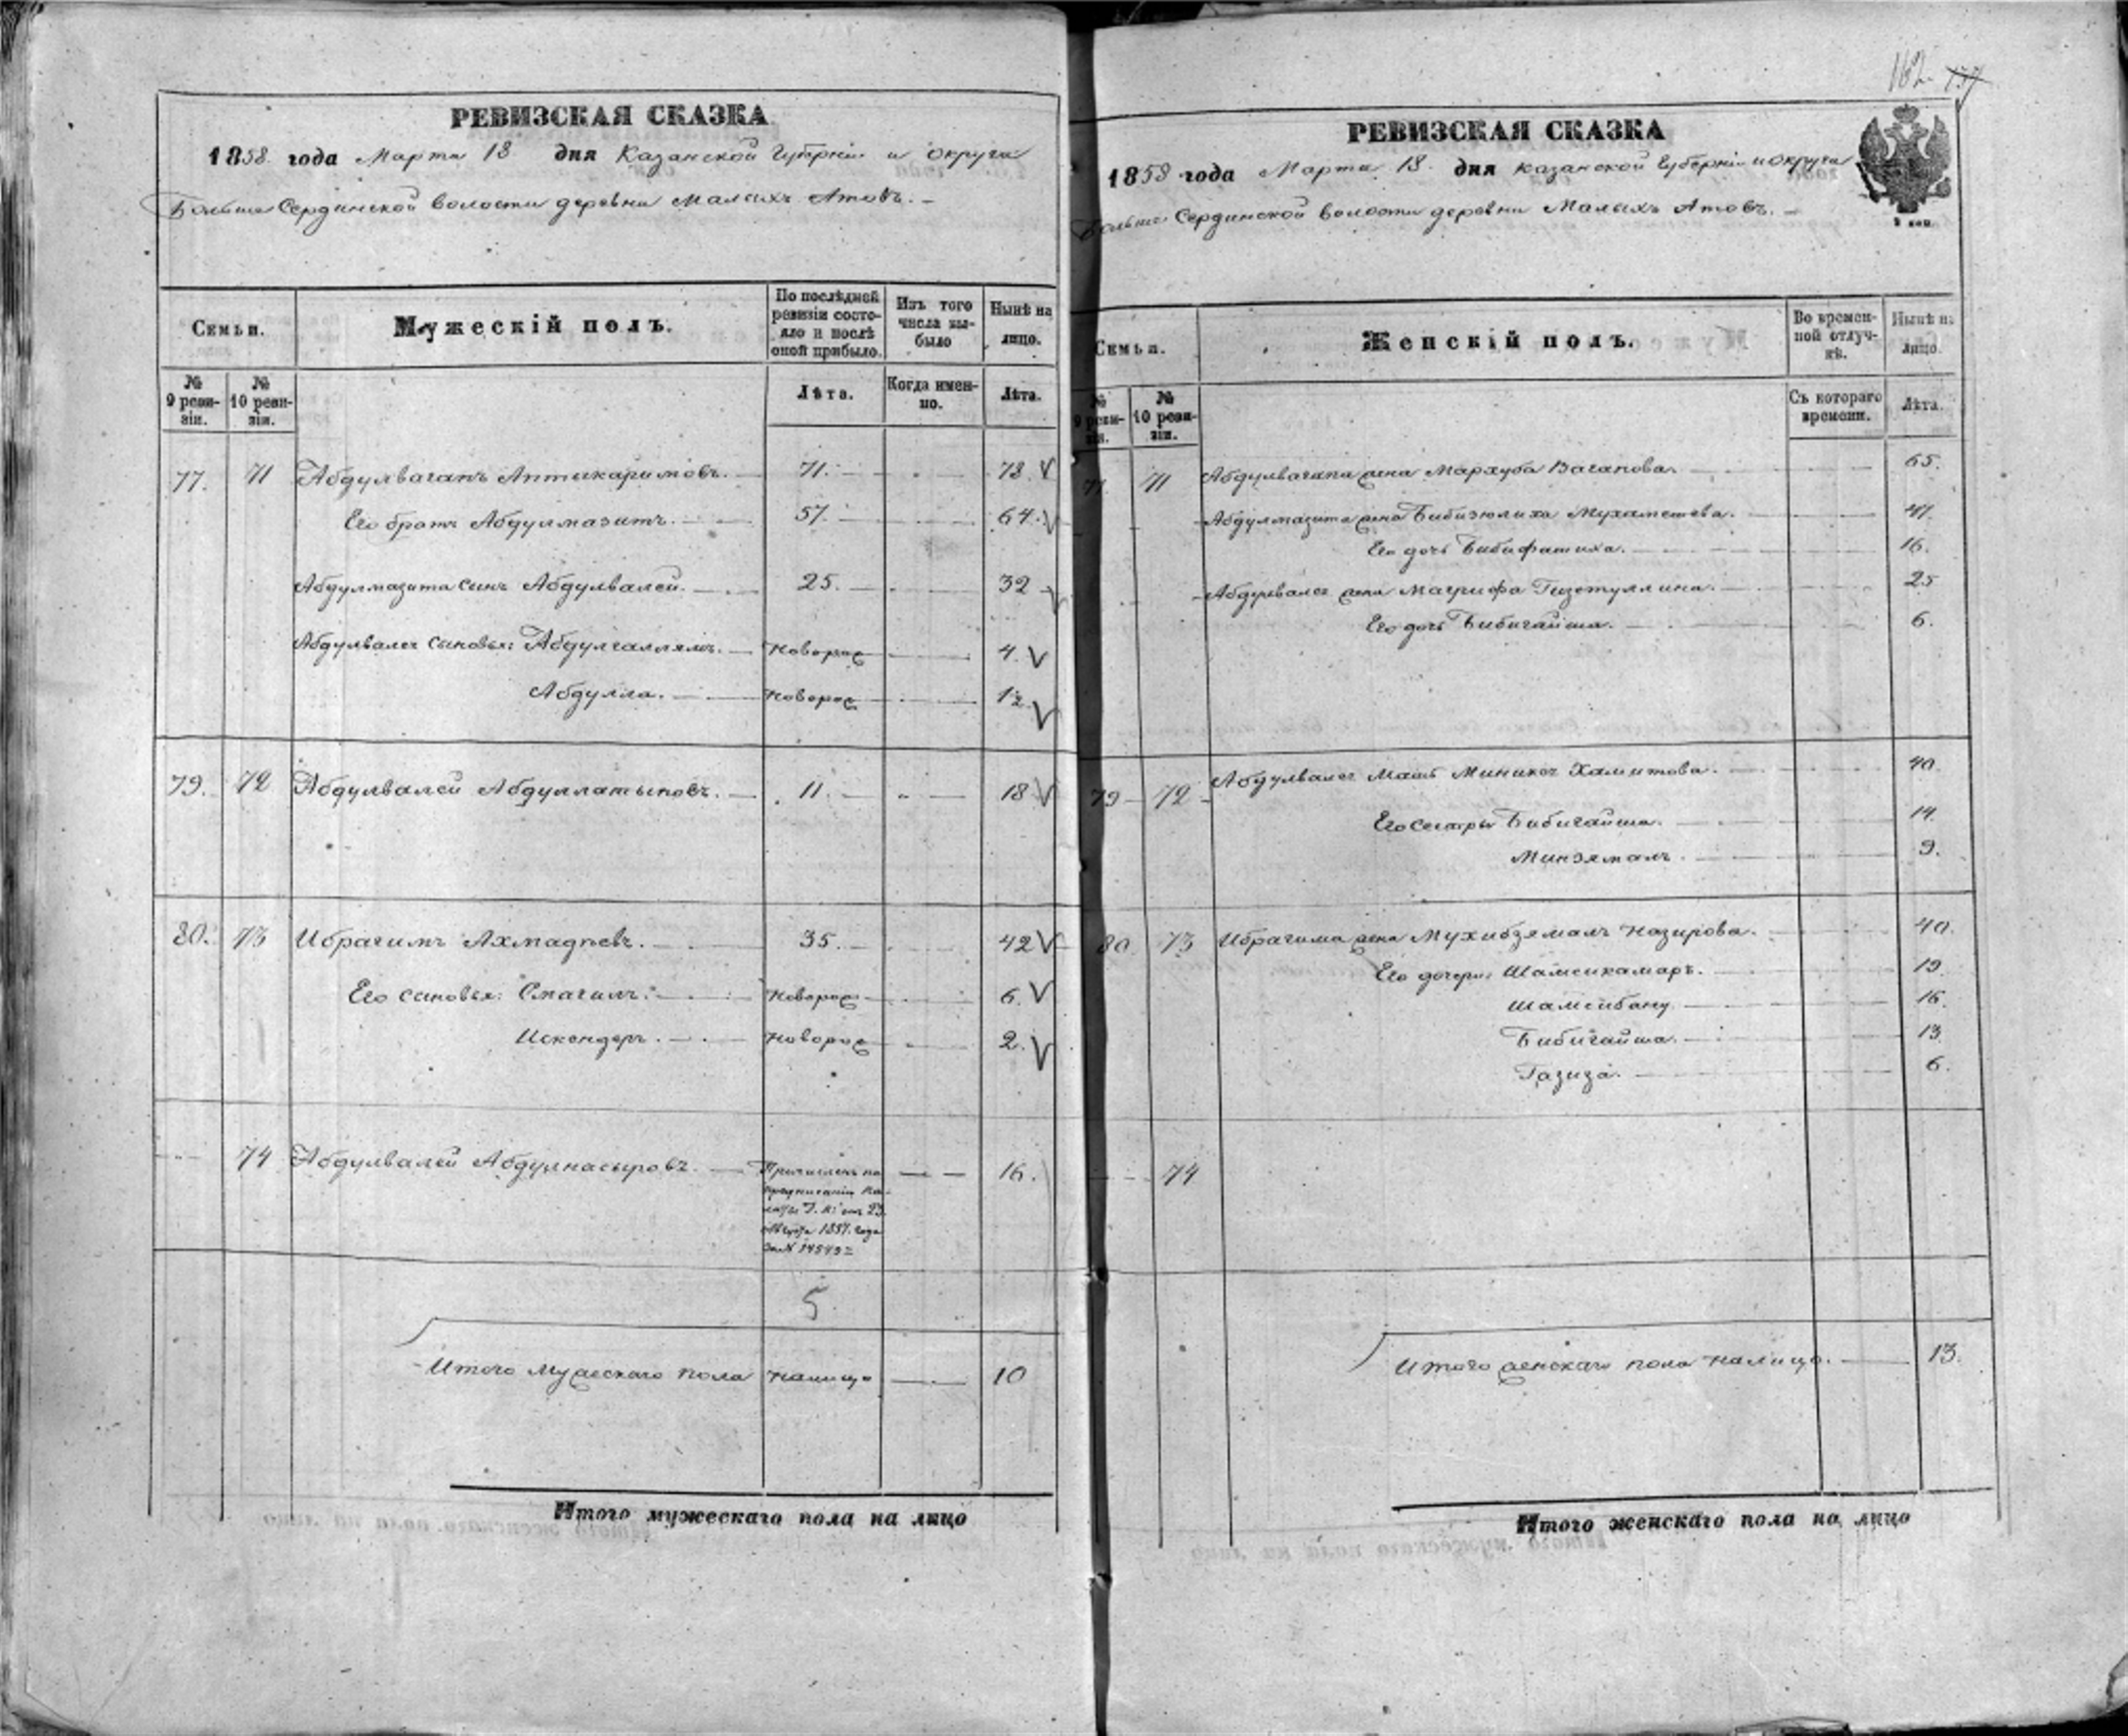 РЕВИЗСКАЯ СКАЗКА
1858 года Марта 18 дня Казанской Губерніи и округа
Больше Сердинской волости деревни Малыхъ Атовъ. -
Семьи.
Мужескій полъ.
По послѣдней ревизіи состояло и послѣ оной прибыло.
Изъ того числа выбыло
Нынѣ на лицо.
№ 9 ревизіи.
№ 10 ревизіи.
Лѣта.
Когда именно.
Лѣта.
77. 71 Абдулвагапъ Аптыкаримовъ. 71. 78. V
Его братъ Абдулмазитъ. 57. 64. V
Абдулмазита сынъ Абдулвалей. 25. 32 V
Абдулвалея сыновья: Абдулгаллямъ. новорож 4. V
Абдулла. новорож 1/2 V
79. 72 Абдулвалей Абдуллатыповъ. 11. 18 V
80. 73 Ибрагимъ Ахмадѣевъ. 35. 42 V
Его сыновья: Смагилъ. новорож 6. V
Искендеръ. новорож 2. V
74 Абдулвалей Абдулнасыровъ. 16.
Причисленъ по
предписанію Па-
латы Г. И. отъ 23
Августа 1857. года
за N 14549
5
Итого мужескаго пола налицо 10
Итого мужескаго пола на лицо
162 137
РЕВИЗСКАЯ СКАЗКА
1858 года Марта 18. дня Казанской Губерніи и округа
Больше Сердинской волости деревни Малыхъ Атовъ. -
Семьи.
Женскій полъ.
Во временной отлучкѣ.
Нынѣ на лицо.
№ 9 ревизіи.
№ 10 ревизіи.
Съ котораго времени.
Лѣта.
77. 71 Абдулвагапа жена Мархуба Вагапова. 65.
Абдулмазита жена Бибизюлиха Мухаметева. 47.
Его дочь Бибифатиха. 16.
Абдулвалея жена Магрифа Гизетуллина. 25
Его дочь Бибигайша. 6.
79 72 Абдулвалея мать Миникей Хамитова. 40.
Его сестры Бибигайша. 14.
Минзямалъ. 9.
80 73 Ибрагима жена Мухибзямалъ Назирова. 40.
Его дочери: Шамсикамаръ. 19
Шамсибану 16.
Бибигайша. 13
Газиза. 6.
74
Итого женскаго пола налицо. 13.
Итого женскаго пола на лицо